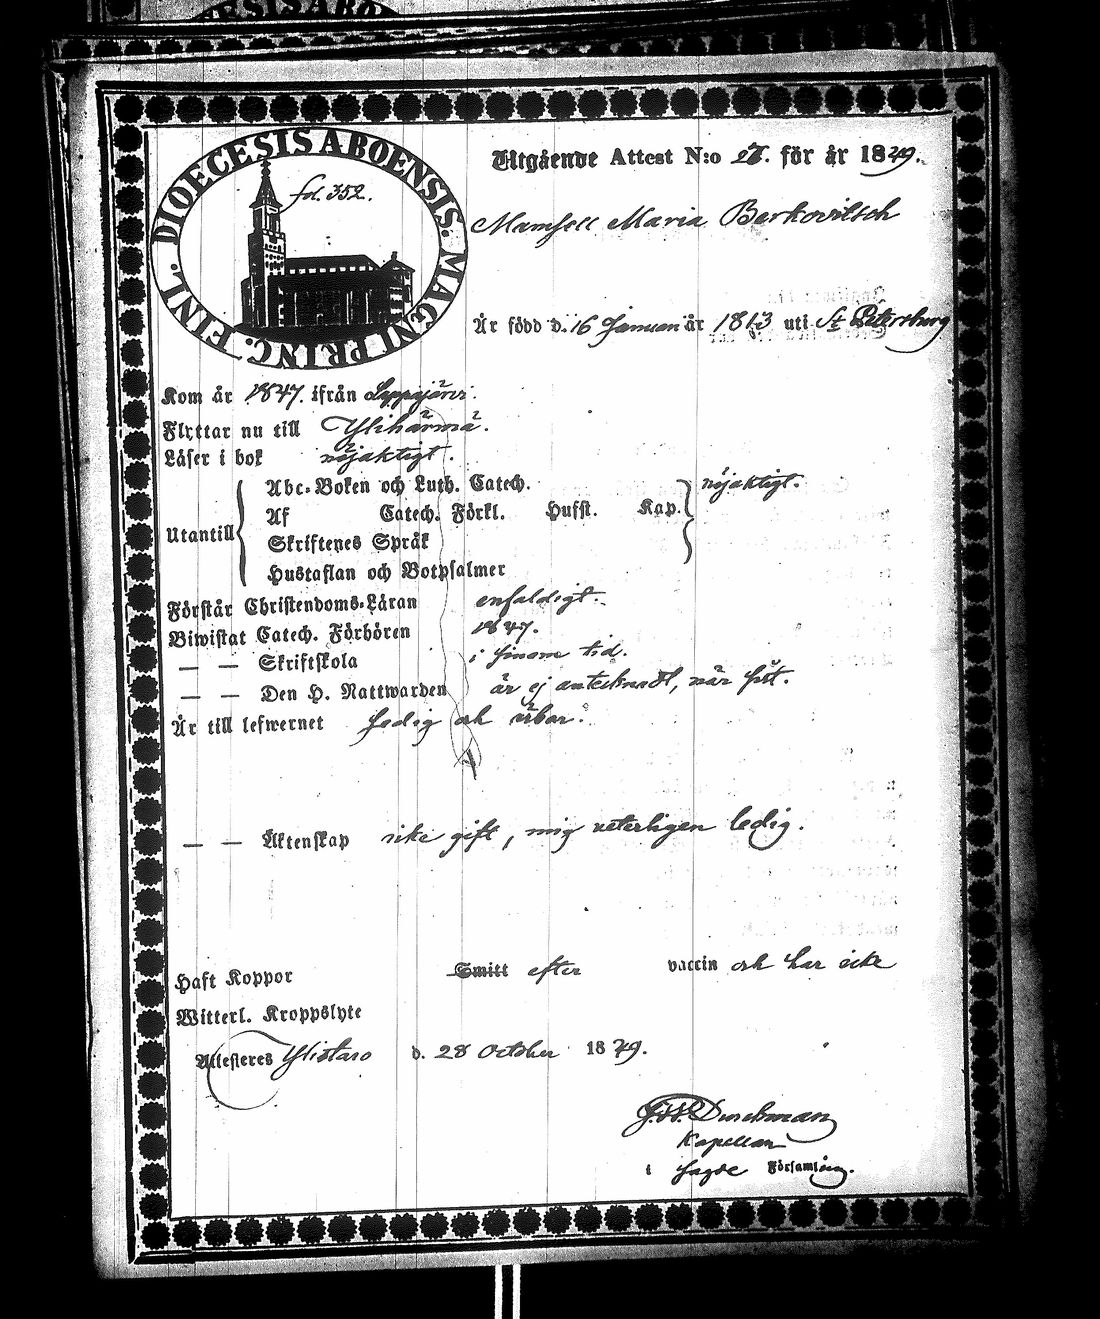 DIOECESIS ABOENSIS. MAGNI PRINC. FINL.
fol. 352.
Utgående Attest N:o 27. för år 1849.
Mamsell Maria Berkovitsch
Är född d. 16 Januari år 1813 uti St Petersburg
Kom år 1847. ifrån Lappajärvi.
Flyttar nu till Ylihärmä.
Läser i bok nöjaktigt.
Abc-Boken och Luth. Catech. nöjaktigt.
Utantill Af Catech. Förkl. Husst. Kap.
Skriftenes Språk
Hustaflan och Botpsalmer
Förstår Christendoms-Läran enfaldigt.
Biwistat Catech. Förhören 1847.
— — Skriftskola i sinom tid.
— — Den H. Nattwarden är ej antecknadt, när sist.
Är till lefwernet ledig och ärbar.
— — Äktenskap icke gift, mig veterligen ledig.
Haft Koppor Smitt efter vaccin och har icke
Witterl. Kroppslyte
Attesteres Ylistaro d. 28 October 1849.
Kapellan
i Församling.